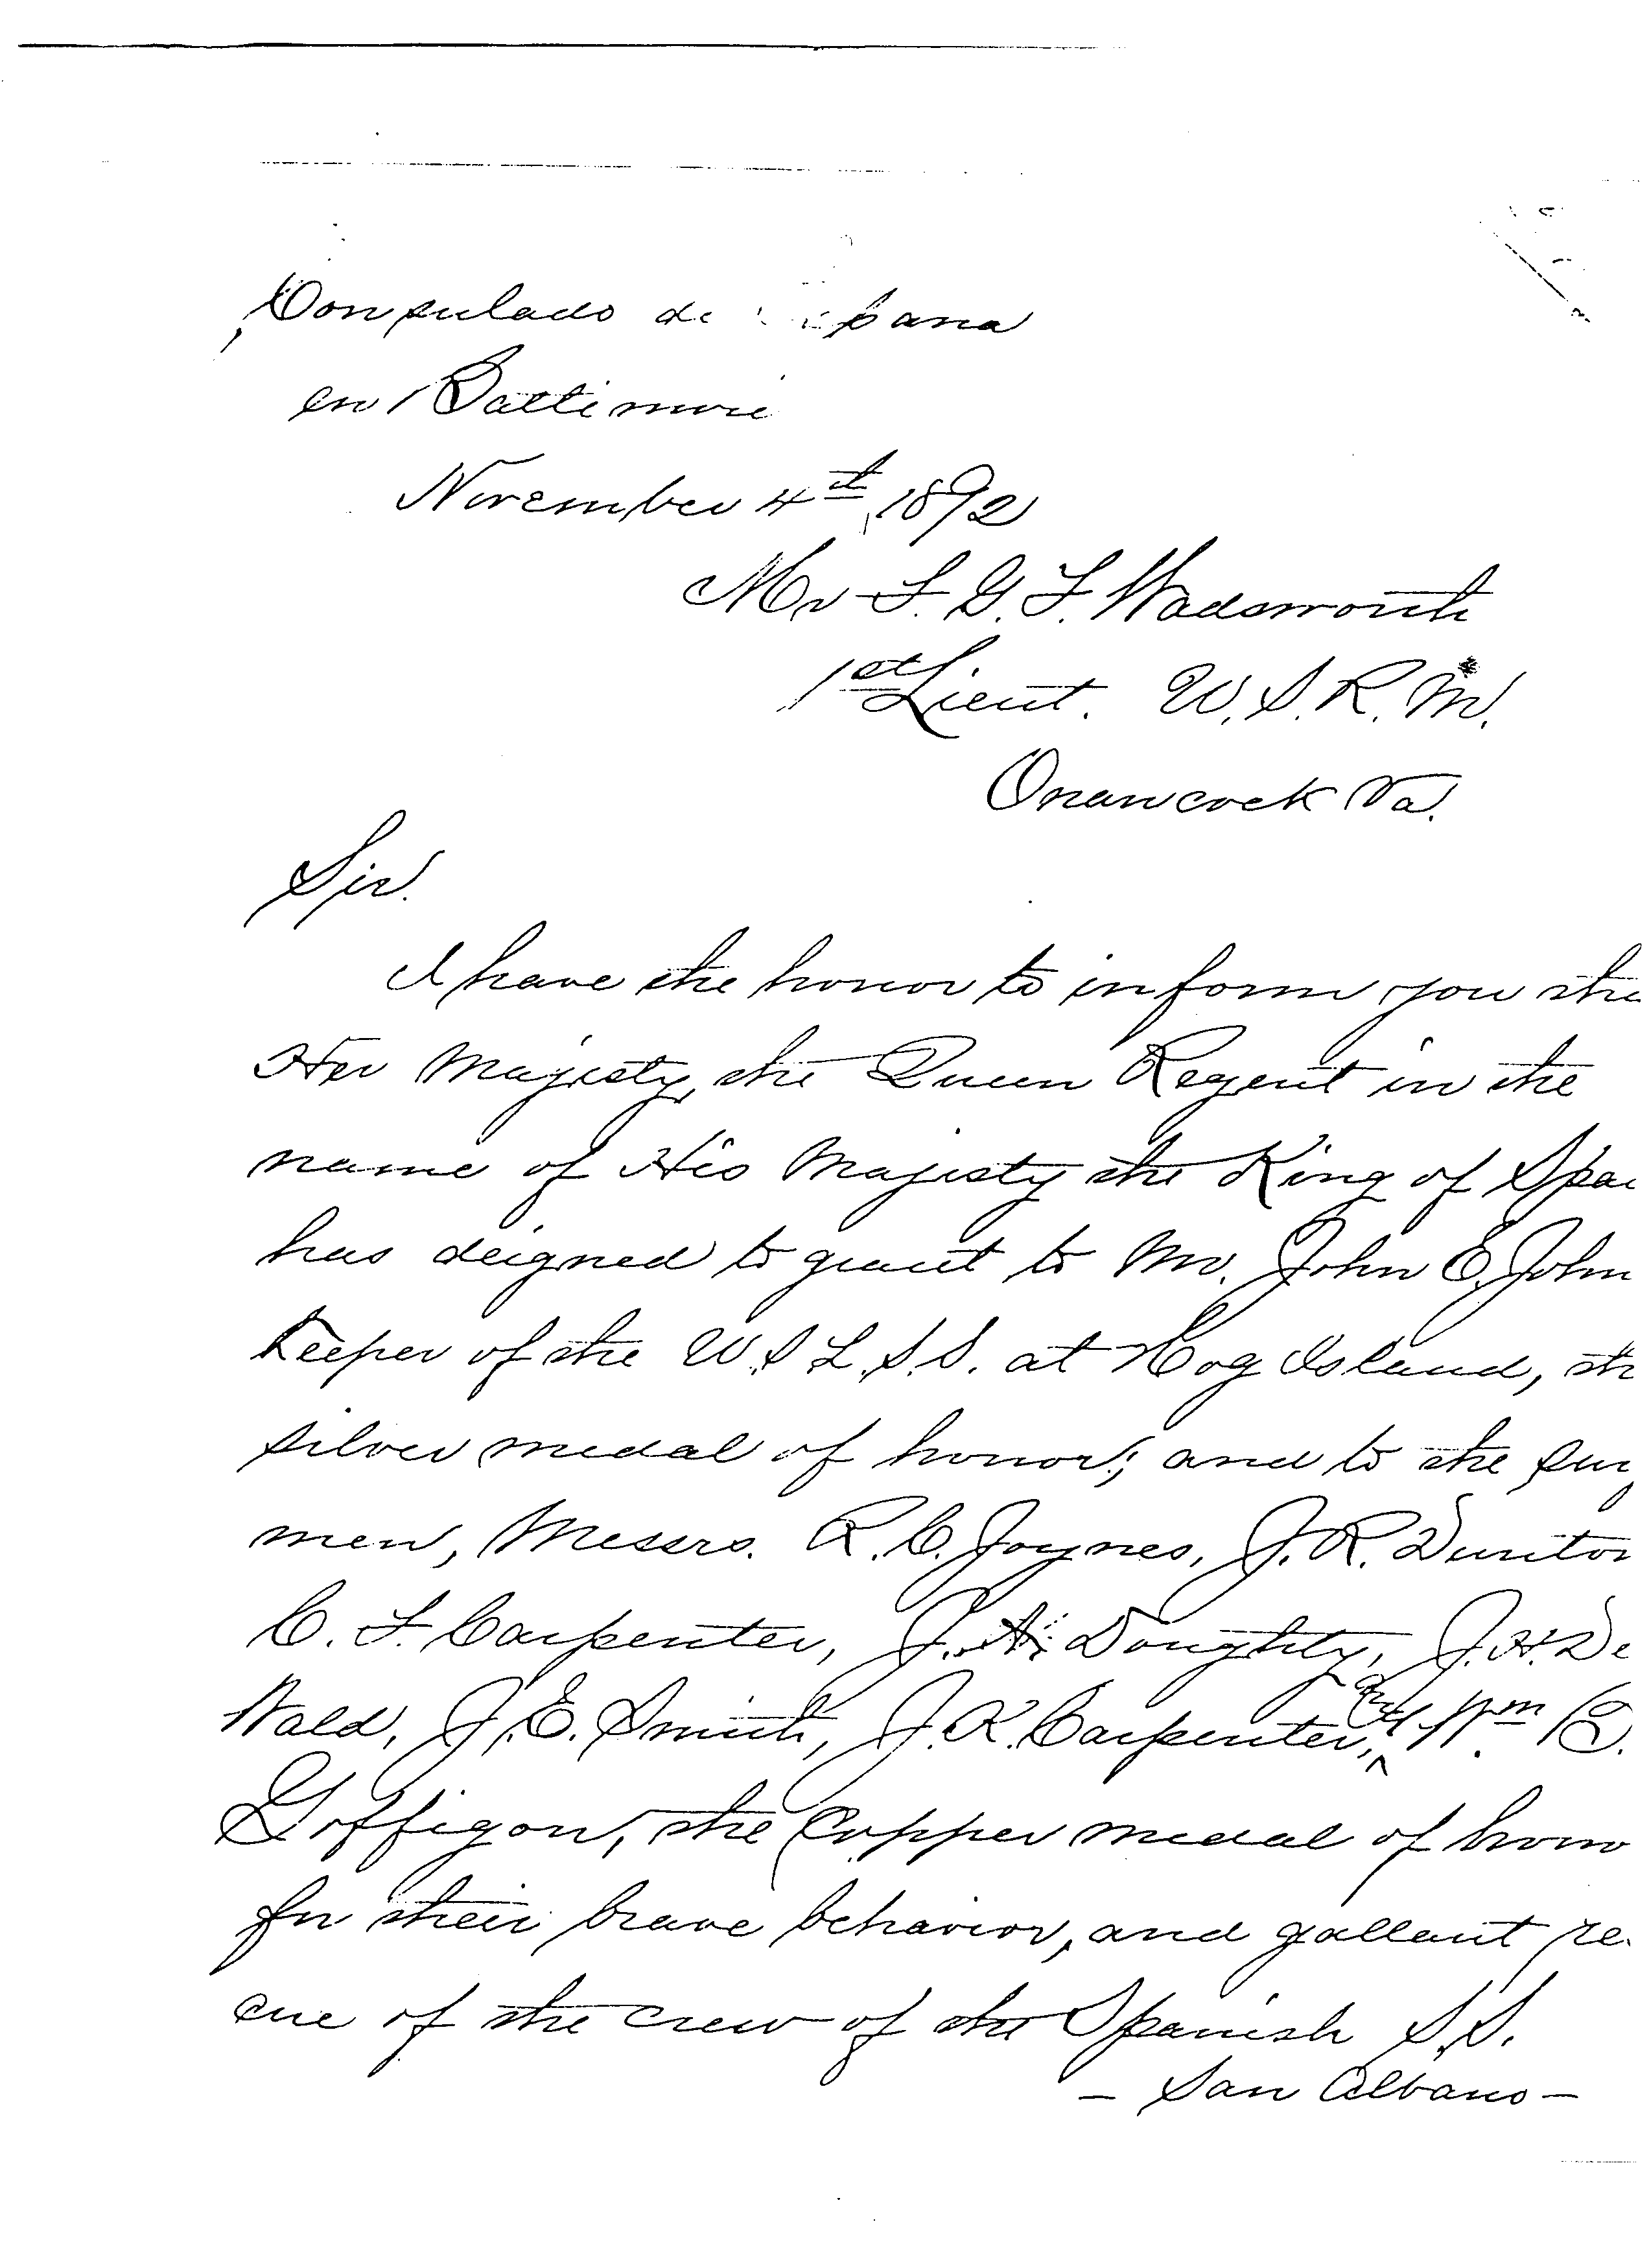 Consulado de Espana
en Baltimore
November 4th 1892
Mr L. G. F. Wadsworth
1st Lieut. U.S.R.M.
Onancock Va.
Sir.
I have the honor to inform you tha
Her Majesty, the Queen Regent in the
name of His Majesty the King of Spai
has deigned to grant to Mr. John E. John
Keeper of the U.S L.S.S. at Hog Island, th
silver medal of honor; and to the sur
men, Messrs. R.C. Joynes, J.R. Dunton
C. F. Carpenter, J. A. Doughty, J.H. De
Wald, J.E. Smith, J.K. Carpenter, and Wm B.
Goffigon, the Copper medal of hono
for their brave behavior, and gallant re
cue of the crew of the Spanish S.S.
— San Albano —